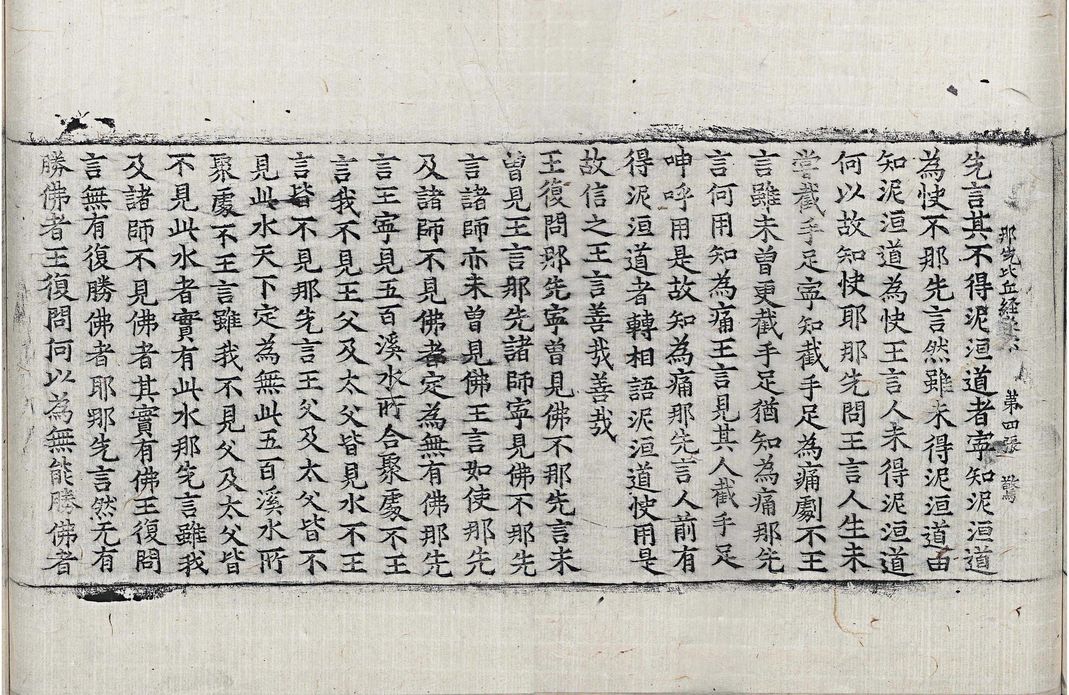 那先比丘經卷下 第四張 驚
先言其不得泥洹道者寧知泥洹道
為快不那先言然雖未得泥洹道由
知泥洹道為快王言人未得泥洹道
何以故知快耶那先問王言人生未
甞截手足寧知截手足為痛劇不王
言雖未曾更截手足猶知為痛那先
言何用知為痛王言見其人截手足
呻呼用是故知為痛那先言人前有
得泥洹道者轉相語泥洹道快用是
故信之王言善哉善哉
王復問那先寧曾見佛不那先言未
曾見王言那先諸師寧見佛不那先
言諸師亦未曾見佛王言如使那先
及諸師不見佛者定為無有佛那先
言王寧見五百溪水所合聚處不王
言我不見王父及太父皆見水不王
言皆不見那先言王父及太父皆不
見此水天下定為無此五百溪水所
聚處不王言雖我不見父及太父皆
不見此水者實有此水那先言雖我
及諸師不見佛者其實有佛王復問
言無有復勝佛者耶那先言然无有
勝佛者王復問何以為無能勝佛者